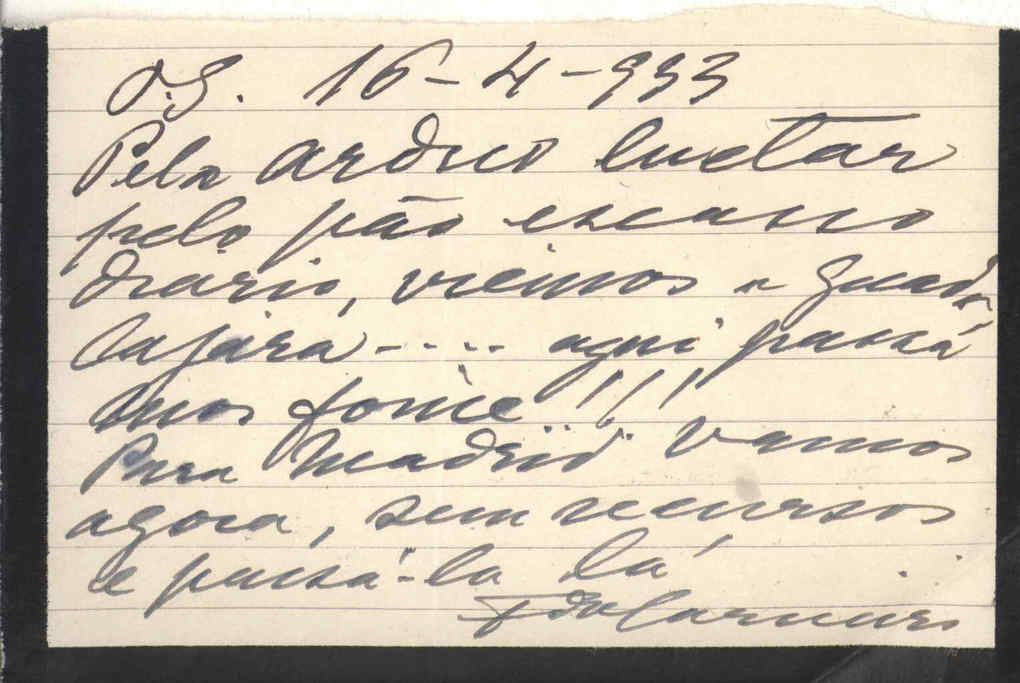 O.S. 16-4-933
Pelo arduo luctar
pelo pão escasso
diário, viemos a Guada
lajara - . . . aqui passá
mos fome!!!
Para Madrid vamos
agora, sem recursos
e passá-la lá